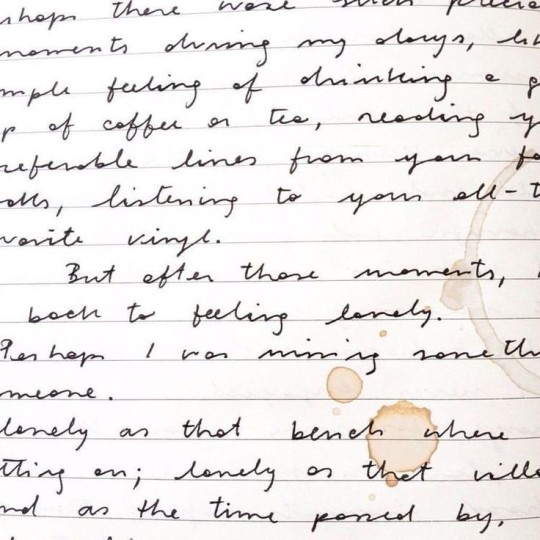 perhaps there were such precio
moments during my days, li
mple feeling of drinking a g
p of coffee or tea, reading y
referable lines from your fa
listening to your all-t
vorite vinyl.
But after those moments,
back to feeling lonely.
Perhaps I was missing someth
meone.
lonely as that bench where
tting on; lonely as that villa
nd as the time passed by,